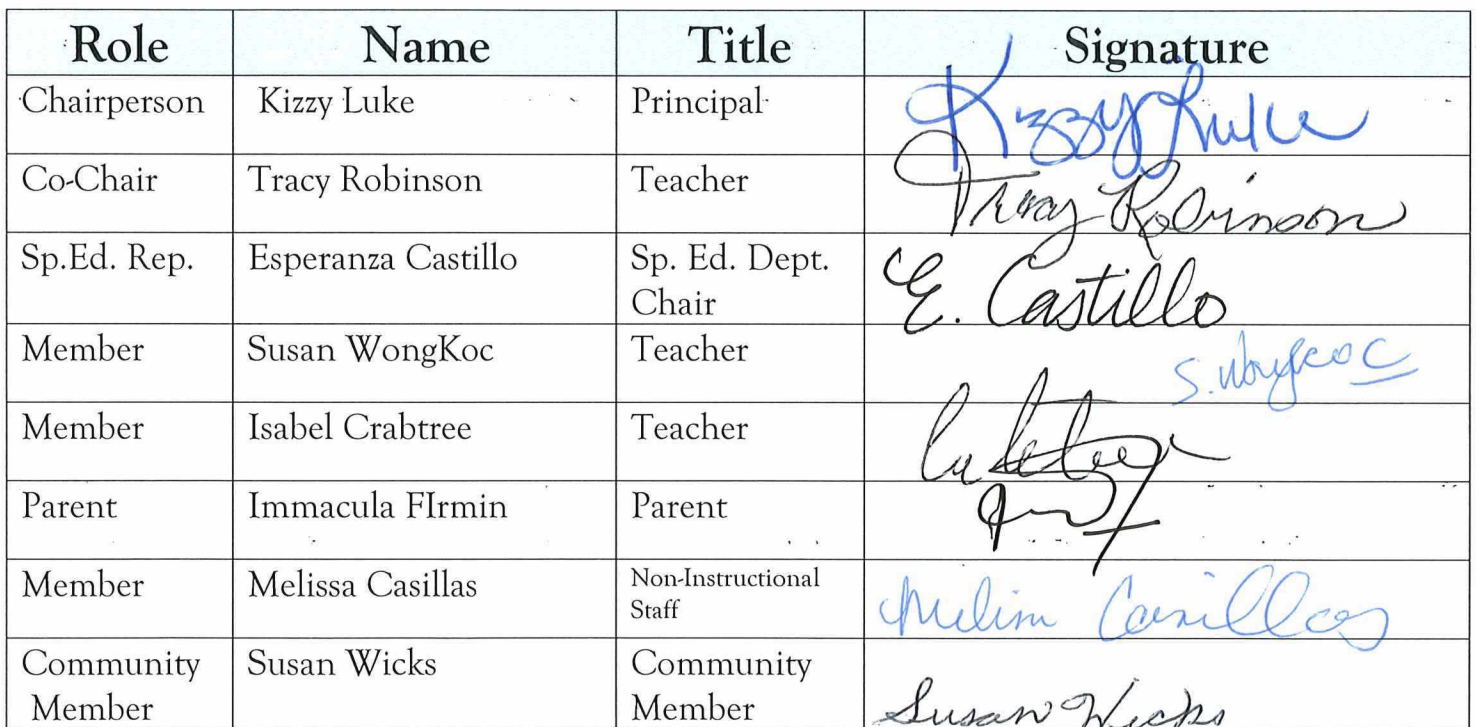 Role Name Title Signature
Chairperson Kizzy Luke Principal Kizzy Luke
Co-Chair Tracy Robinson Teacher Tracy Robinson
Sp.Ed. Rep. Esperanza Castillo Sp. Ed. Dept. E. Castillo
Chair
Member Susan WongKoc Teacher S. Wongkoc
Member Isabel Crabtree Teacher
Parent Immacula FIrmin Parent
Member Melissa Casillas Non-Instructional Melissa Casillas
Staff
Community Susan Wicks Community Susan Wicks
Member Member